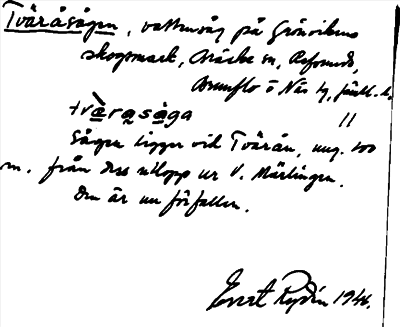 Tväråsågen, vattensåg på Grönvikens
skogsmark, Bräcke sn, Refsunds,
Brunflo o Näs tg, Jämtl. l.
tvæ̀rasåga 11
Sågen ligger vid Tvärån, ung. 100
m. från dess utlopp ur V. Märlingen.
Den är nu förfallen.
Evert Rydin 1946.